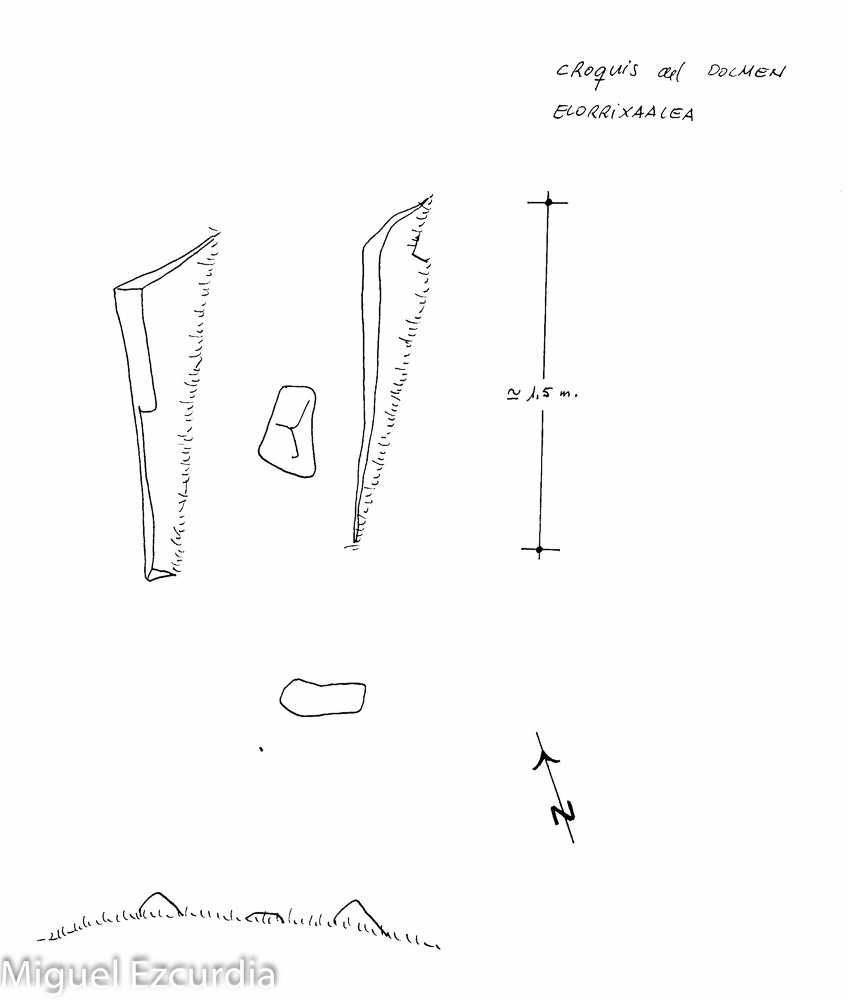 CROQUIS del DOLMEN
ELORRIXAALEA
≃ 1,5 m.
N
Miguel Ezcurdia